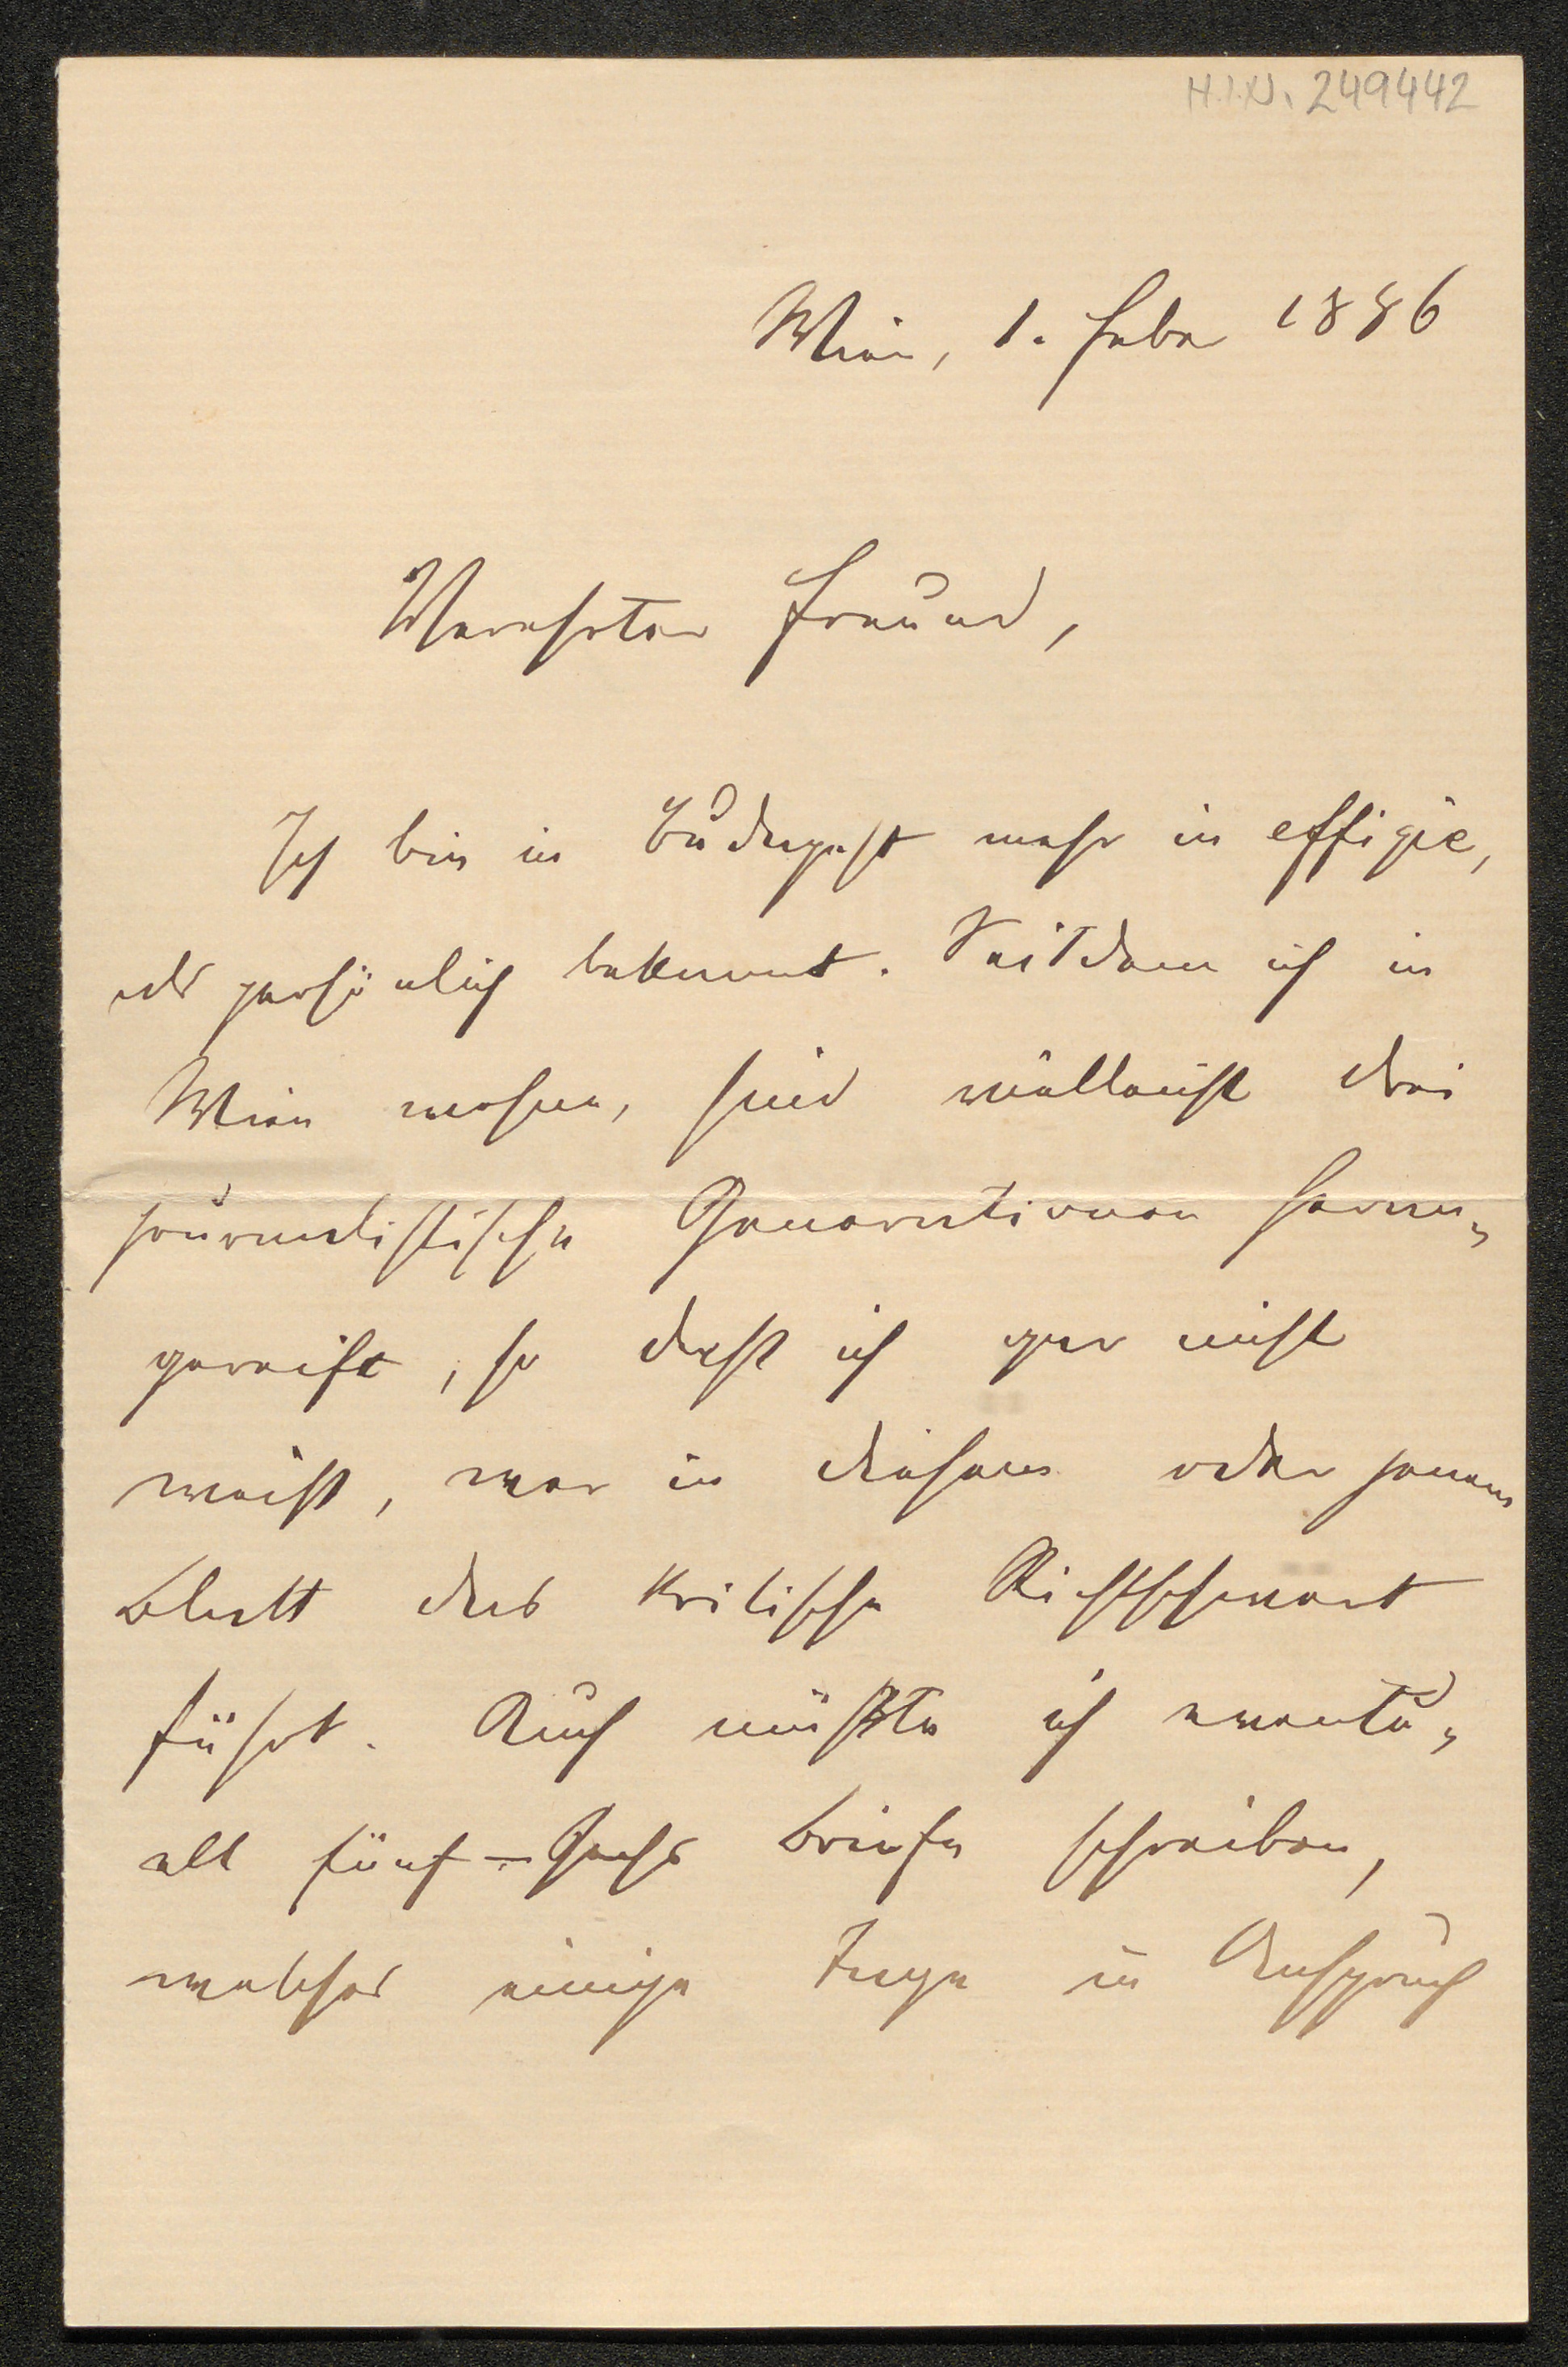 H.I.N. 249442
Wien, 1. Feber 1886
Verehrter Freund,
Ich bin in Budapest mehr in effigie,
als persönlich bekannt. Seitdem ich in
Wien wohne, sind vielleicht drei
journalistische Generationen heran-
gereift, so daß ich gar nicht
weiß, wer in diesem oder jenem
Blatt das kritische Richtschwert
führt. Auch müßte ich eventu-
ell fünf–sechs Briefe schreiben,
welches einige Tage in Anspruch